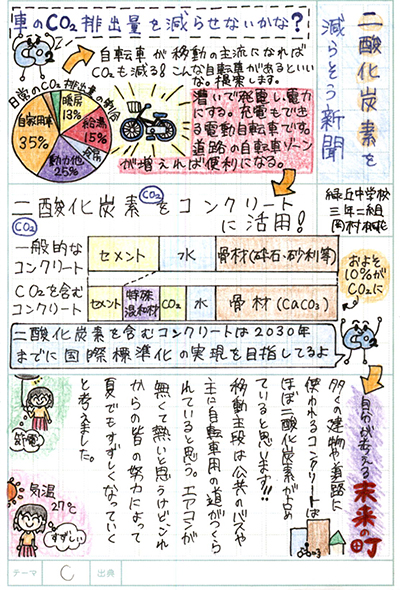 二酸化炭素を
減らそう新聞
緑丘中学校
三年二組
車のCO₂排出量を減らせないかな？
自転車が移動の主流になれば
CO₂も減る！こんな自転車があるといい
な。提案します。
日常のCO₂排出量の割合
暖房
13%
給湯
15%
動力他
25%
自家用車
35%
漕いで発電し、電力
にする。充電もでき
る電動自転車です。
道路の自転車ゾーン
が増えれば便利になる。
二酸化炭素をコンクリート
に活用！
CO₂
CO₂
一般的な
コンクリート
セメント
水
骨材(砕石・砂利等)
CO₂を含む
コンクリート
セメント
特殊
混和材
CO₂
水
骨材(CaCO₃)
およそ
10%が
CO₂に
CO₂
二酸化炭素を含むコンクリートは2030年
までに国際標準化の実現を目指してるよ
私が考える未来の町
多くの建物や道路に
使われるコンクリートは
ほぼ二酸化炭素が占め
ていると思います!!
移動手段は公共のバスや
主に自転車用の道がつくら
れていると思う。エアコンが
無くて熱いと思うけどこれ
からの皆の努力によって
夏でもすずしくなっていく
と考えました。
節電
気温
27℃
すずしい
テーマ
C
出典